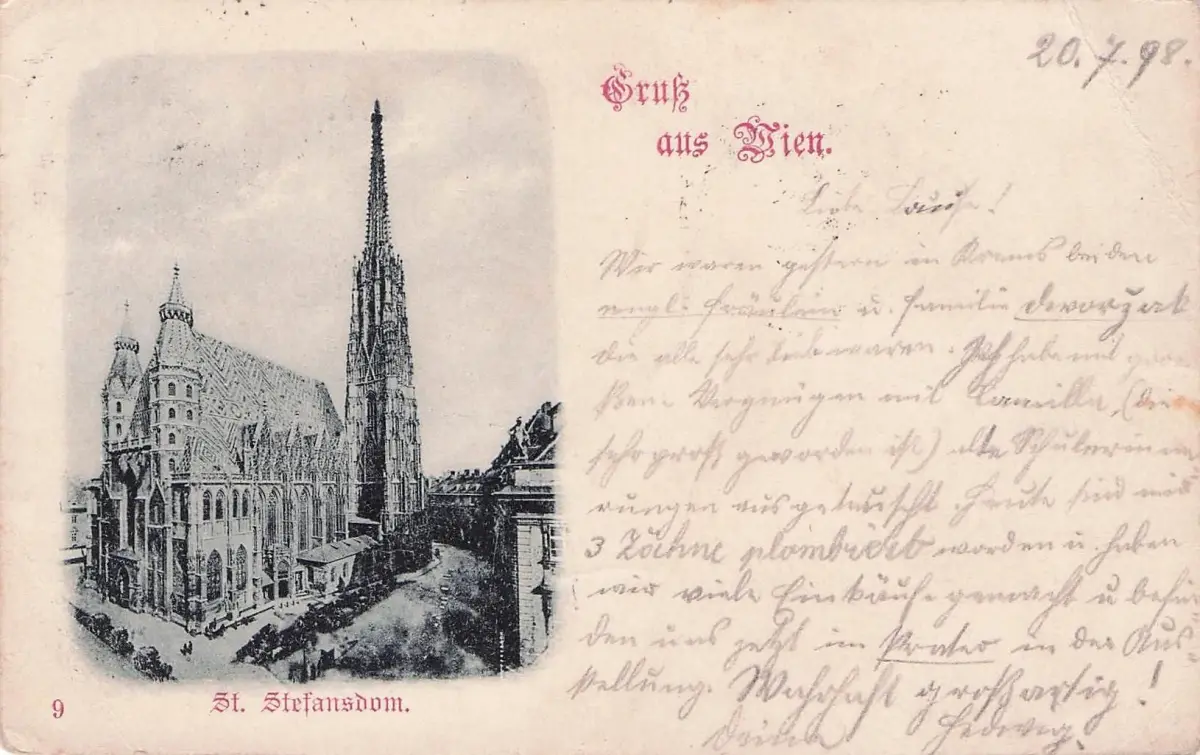 20. 7. 98.
Gruß
aus Wien.
Liebe
Wir waren gestern in Krems bei den
engl. Fräulein u. Familie Dworzak
die alle sehr lieb waren. Ich habe mit gro-
ßem Vergnügen mit Camilla, (die
sehr groß geworden ist) alte Schülerinne-
rungen ausgetauscht. Heute sind mir
3 Zähne plombiert worden u. haben
wir viele Einkäufe gemacht u. befin
den uns jetzt im Prater in der Aus-
stellung. Wahrhaft großartig!
Deine Hedwig.
9
St. Stefansdom.